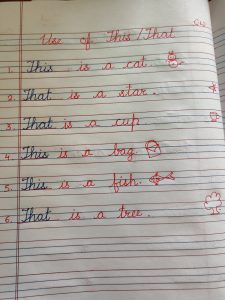 Use of This/That
1. This is a cat.
2. That is a star.
3. That is a cup.
4. This is a bag.
5. This is a fish.
6. That is a tree.